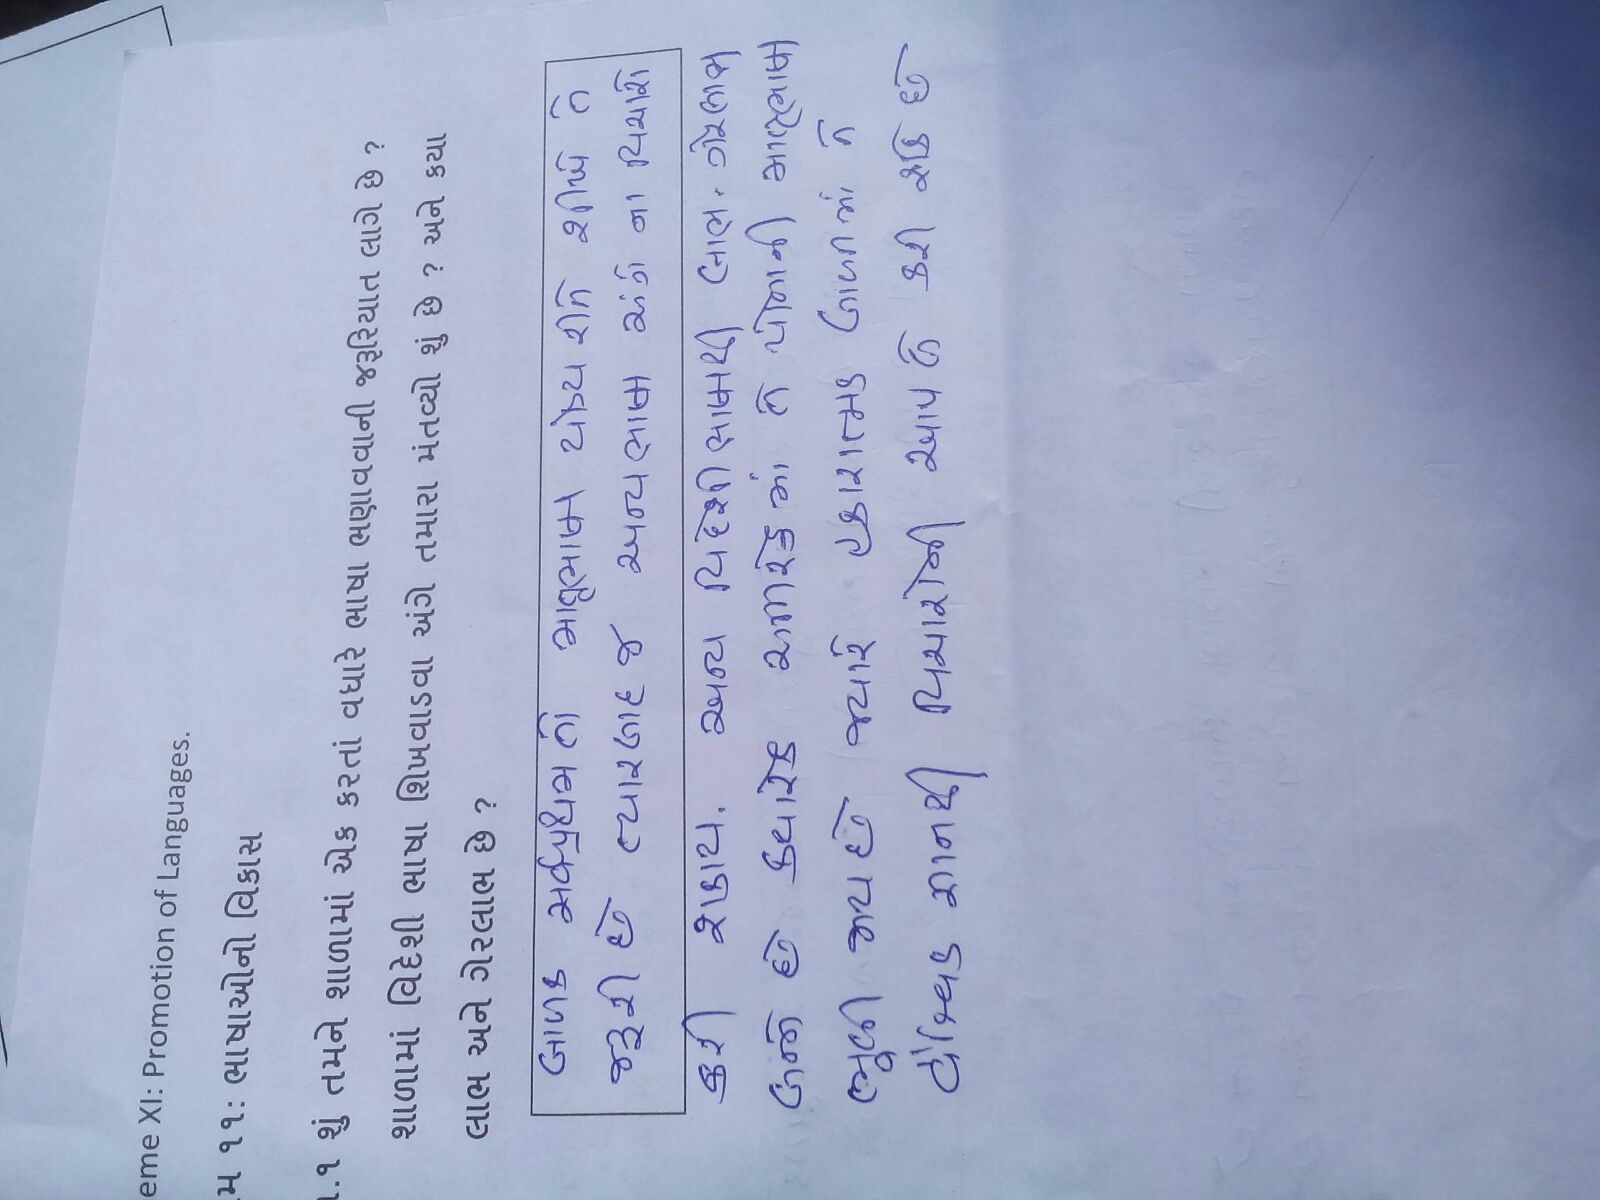 eme XI: Promotion of Languages.
મ ૧૧: ભાષાઓનો વિકાસ
.૧ શું તમને શાળામાં એક કરતાં વધારે ભાષા ભણાવવાની જરૂરિયાત લાગે છે ?
શાળામાં વિદેશી ભાષા શિખવાડવા અંગે તમારા મંતવ્યો શું છે ? અને કયા
લાભ અને ગેરલાભ છે ?
બાળક સર્વપ્રથમ તો માતૃભાષા યોગ્ય રીતે શીખે તે
જરૂરી છે ત્યારબાદ જ અન્ય ભાષા અંગે ના વિચારો
કરી શકાય. અન્ય વિદેશી ભાષાથી લાભ. ગેરલાભ
બન્ને છે ક્યારેક સમાજમાં તે પોતાની માતૃભાષા
ભુલી જાય છે જ્યારે હકારાત્મક બાબતમાં તે
વૈશ્વિક જ્ઞાનથી વિચારોની આપ લે કરી શકે છે